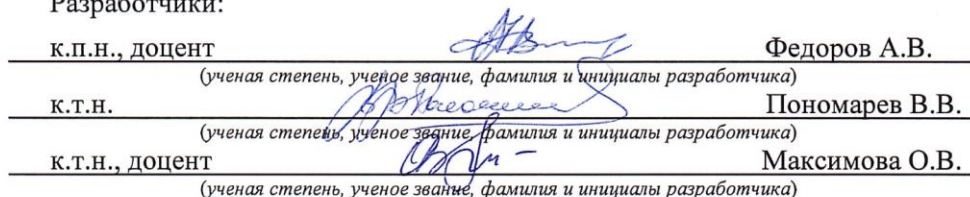 Разработчики:
к.п.н., доцент Федоров А.В.
(ученая степень, ученое звание, фамилия и инициалы разработчика)
к.т.н. Пономарев В.В.
(ученая степень, ученое звание, фамилия и инициалы разработчика)
к.т.н., доцент Максимова О.В.
(ученая степень, ученое звание, фамилия и инициалы разработчика)